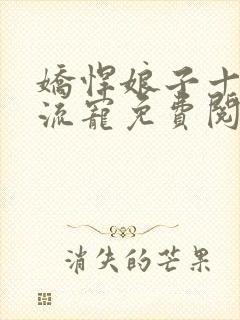 嬌悍娘子十
流寵免費閱
消失的芒果